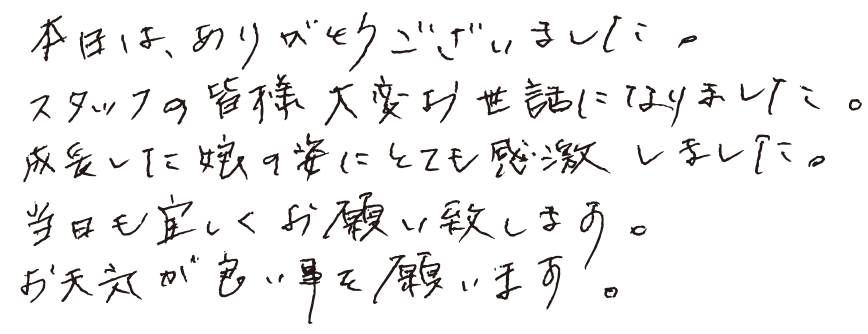 本日は、ありがとうございました。
スタッフの皆様大変お世話になりました。
成長した娘の姿にとても感激しました。
当日も宜しくお願い致します。
お天気が良い事を願います。